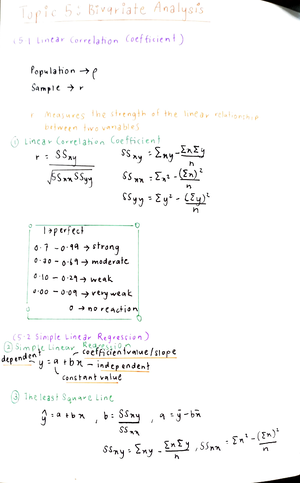 Topic 5: Bivariate Analysis
(5.1 Linear Correlation Coefficient)
Population → ρ
Sample → r
r Measures the strength of the linear relationship
between two variables
① Linear Correlation Coefficient
r = SSxy / √SSxx SSyy
SSxy = Σxy - ΣxΣy / n
SSxx = Σx² - (Σx)² / n
SSyy = Σy² - (Σy)² / n
1 → perfect
0.7 - 0.99 → strong
0.30 - 0.69 → moderate
0.10 - 0.29 → weak
0.00 - 0.09 → very weak
0 → no reaction
(5.2 Simple Linear Regression)
② Simple Linear Regression
coefficient value/slope
dependent y = a + bx - independent
constant value
③ The least Square Line
ŷ = a + bx , b = SSxy / SSxx , a = ȳ - bx̄
SSxy = Σxy - ΣxΣy / n , SSxx = Σx² - (Σx)² / n